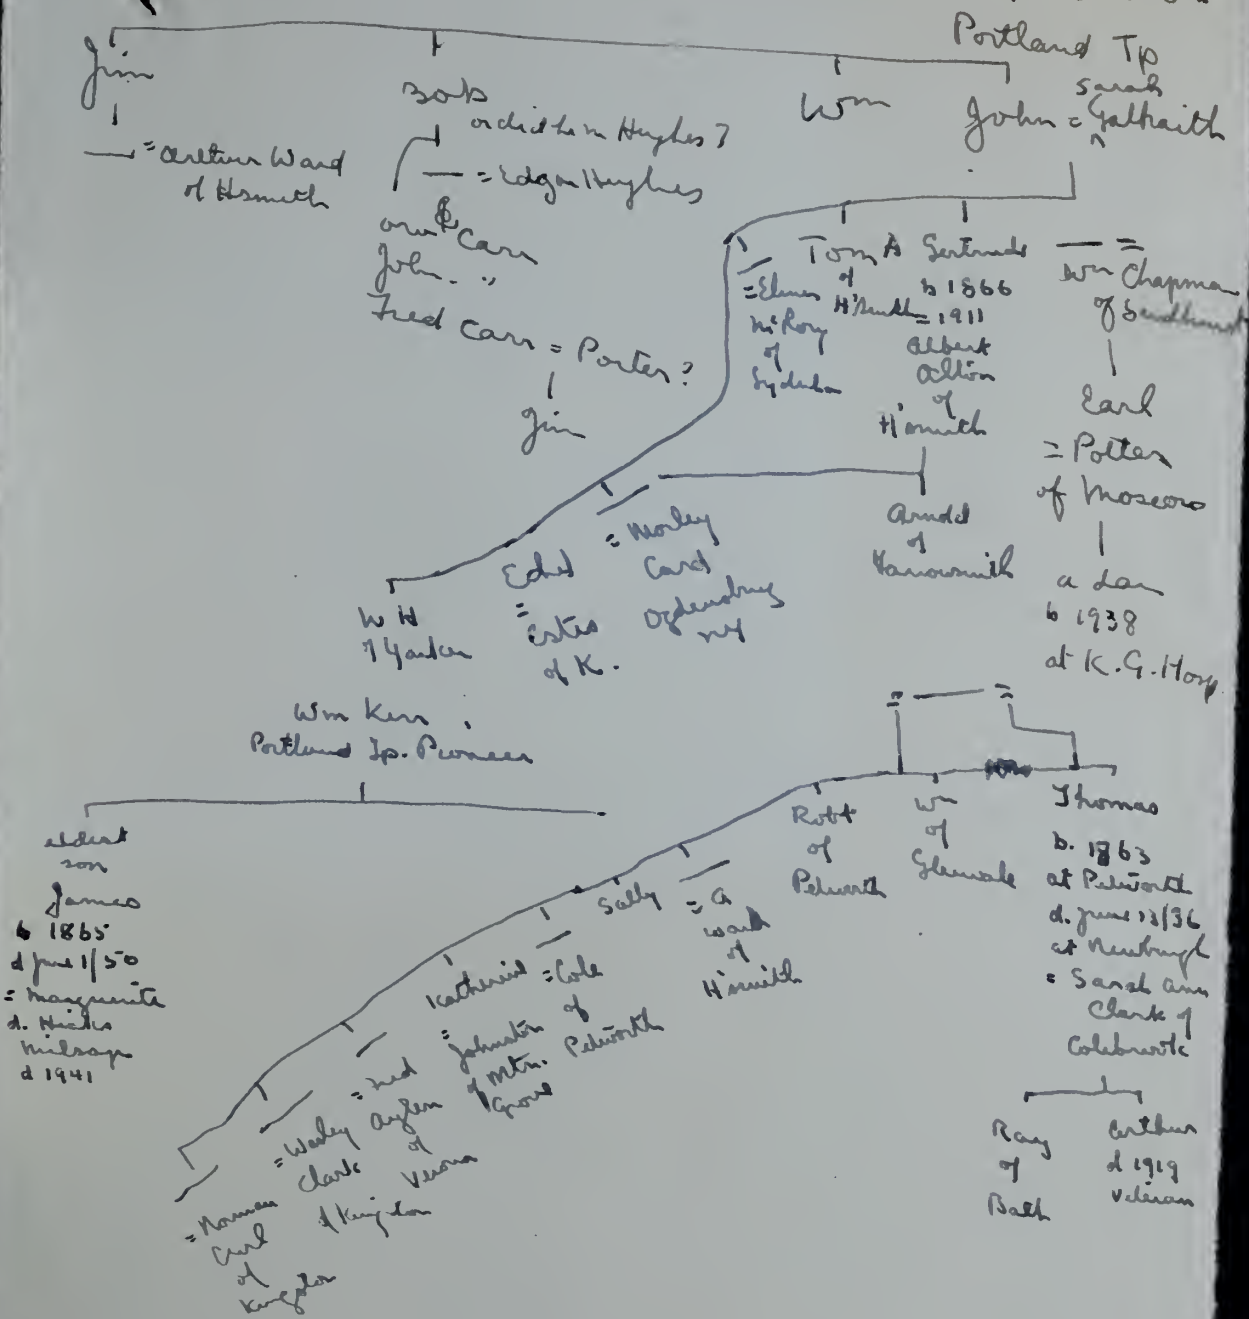 Portland Tp
Jim
= Arthur Ward
of Hsmith
Bob
or did he m Hughes?
= Edgar Hughes
Carr
John "
Fred Carr = Porter?
Jim
Wm
Sarah
John = Galbraith
= Elmer
McRory
of
Sydenham
Tom A
of
H'smith
Gertrude
b 1866
= 1911
Albert
Albion
of
H'smith
Arnold
of
Harrowsmith
=
Wm Chapman
of
Earl
= Potter
of Moscow
a dau
b 1938
at K.G. Hosp.
W H
of Yarker
Ethel
=
Estes
of K.
= Morley
Card
Ogdensburg
NY
Wm Kerr
Portland Tp. Pioneer
eldest
son
James
b 1865
d June 1/50
= Marguerite
d. Hicks
Milsap
d 1941
= Norman
of
Kingston
= Wesley
Clark
of Kingston
= Fred
of
Verona
Katherine
= Johnston
of Mtn.
Grove
= Cole
of
Petworth
Sally
= a
Ward
of
H'smith
Robt
of
Petworth
Wm
of
Glenvale
= =
Thomas
b. 1863
at Petworth
d. June 13/36
at Newburgh
= Sarah Ann
Clark of
Colebrook
Ray
of
Bath
Arthur
d 1919
veteran